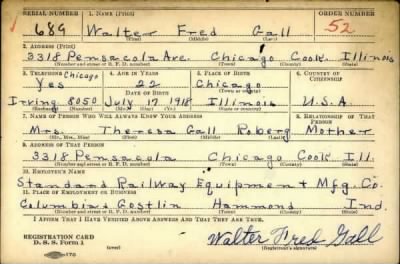 SERIAL NUMBER 1. NAME (Print) ORDER NUMBER
689 Walter Fred Gall 52
(First) (Middle) (Last)
2. ADDRESS (Print)
3318 Pensacola Ave. Chicago Cook Illinois
(Number and street or R. F. D. number) (Town) (County) (State)
3. TELEPHONE 4. AGE IN YEARS 5. PLACE OF BIRTH 6. COUNTRY OF CITIZENSHIP
Chicago
Yes 22 Chicago
DATE OF BIRTH (Town or county)
Irving 8050 July 17 1918 Illinois U.S.A.
(Mo.) (Day) (Yr.) (State or country)
7. NAME OF PERSON WHO WILL ALWAYS KNOW YOUR ADDRESS 8. RELATIONSHIP OF THAT PERSON
Mrs. Theresa Gall Roberg Mother
(Mr., Mrs., Miss) (First) (Middle) (Last)
9. ADDRESS OF THAT PERSON
3318 Pensacola Chicago Cook Ill.
(Number and street or R. F. D. number) (Town) (County) (State)
10. EMPLOYER'S NAME
Standard Railway Equipment Mfg. Co.
11. PLACE OF EMPLOYMENT OR BUSINESS
Columbia & Gostlin Hammond Ind.
(Number and street or R. F. D. number) (Town) (County) (State)
I AFFIRM THAT I HAVE VERIFIED ABOVE ANSWERS AND THAT THEY ARE TRUE.
REGISTRATION CARD
D. S. S. Form 1 (over) Walter Fred Gall
(Registrant's signature)